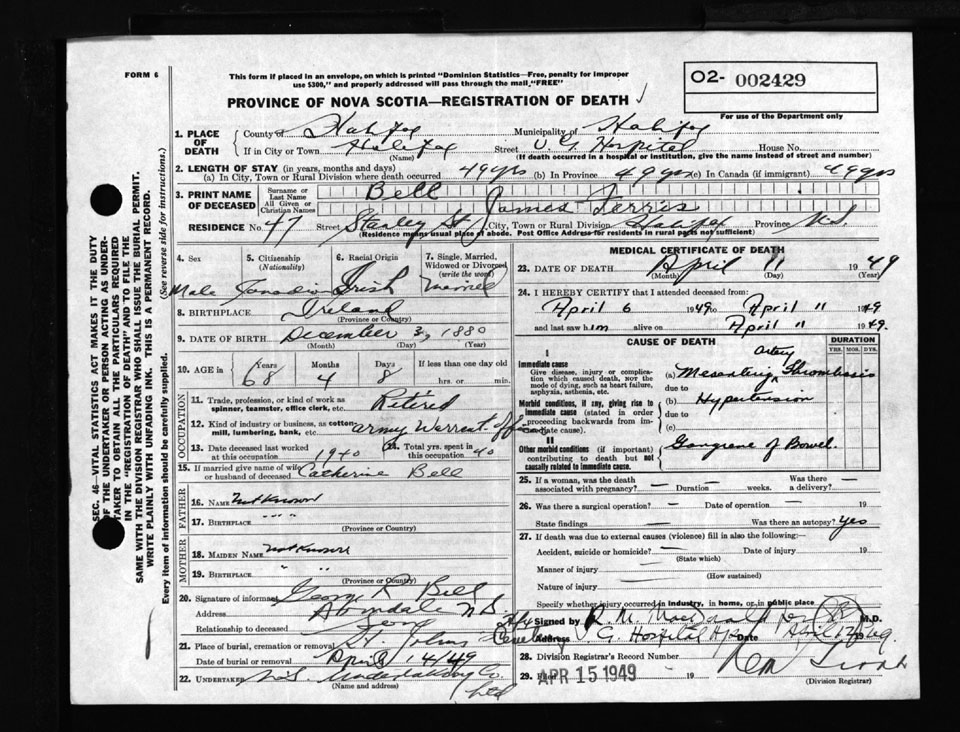 FORM 6
This form if placed in an envelope, on which is printed "Dominion Statistics—Free, penalty for improper
use $300," and properly addressed will pass through the mail "FREE"
PROVINCE OF NOVA SCOTIA—REGISTRATION OF DEATH
O2- 002429
For use of the Department only
1. PLACE OF DEATH { County of Halifax Municipality of Halifax
If in City or Town Halifax (Name) Street V. G. Hospital House No.
(If death occurred in a hospital or institution, give the name instead of street and number)
2. LENGTH OF STAY (in years, months and days)
(a) In City, Town or Rural Division where death occurred 49 yrs (b) In Province 49 yrs (c) In Canada (if immigrant) 49 yrs
3. PRINT NAME OF DECEASED { Surname or Last Name Bell
All Given or Christian Names James Ferris
RESIDENCE No. 47 Street Stanley St City, Town or Rural Division Halifax Province N.S.
(Residence means usual place of abode. Post Office Address for residents in rural parts not sufficient)
4. Sex
Male
5. Citizenship (Nationality)
Canadian
6. Racial Origin
Irish
7. Single, Married, Widowed or Divorced (write the word)
Married
8. BIRTHPLACE Ireland
(Province or Country)
9. DATE OF BIRTH December 3, 1880
(Month) (Day) (Year)
10. AGE in { Years 68 Months 4 Days 8 If less than one day old
hrs. or min.
OCCUPATION
11. Trade, profession, or kind of work as spinner, teamster, office clerk, etc. Retired
12. Kind of industry or business, as cotton mill, lumbering, bank, etc. army Warrant officer
13. Date deceased last worked at this occupation 1940
14. Total yrs. spent in this occupation 40
15. If married give name of wife or husband of deceased Catherine Bell
FATHER
16. NAME not Known
17. BIRTHPLACE " "
(Province or Country)
MOTHER
18. MAIDEN NAME not Known
19. BIRTHPLACE " "
(Province or Country)
20. Signature of informant George R Bell
Address Armdale N.S.
Relationship to deceased Son
21. Place of burial, cremation or removal St. Johns Cemetery
Date of burial or removal April 14/49
22. UNDERTAKER N.S. Undertaking Co. Ltd
(Name and address)
MEDICAL CERTIFICATE OF DEATH
23. DATE OF DEATH April 11 1949
(Month) (Day)
24. I HEREBY CERTIFY that I attended deceased from:
April 6 1949 to April 11 1949
and last saw him alive on April 11 1949.
CAUSE OF DEATH
DURATION
YRS. MOS. DYS.
I
Immediate cause
Give disease, injury or complication which caused death, NOT the mode of dying, such as heart failure, asphyxia, asthenia, etc.
(a) Mesenteric artery Thrombosis
due to
Morbid conditions, if any, giving rise to immediate cause (stated in order proceeding backwards from immediate cause).
(b) Hypertension
due to
(c)
II
Other morbid conditions (if important) contributing to death but not causally related to immediate cause.
Gangrene of Bowel.
25. If a woman, was the death associated with pregnancy? — Duration — weeks. Was there a delivery? —
26. Was there a surgical operation? — Date of operation — 19
State findings — Was there an autopsy? yes
27. If death was due to external causes (violence) fill in also the following:—
Accident, suicide or homicide? — Date of injury 19
(State which)
Manner of injury —
(How sustained)
Nature of injury —
Specify whether injury occurred in industry, in home, or in public place
Signed by R. M. MacDonald M.D.
Address V. G. Hospital Hfx Date April 12 1949
28. Division Registrar's Record Number
29. Filed APR 15 1949 19
(Division Registrar)
SEC. 46—VITAL STATISTICS ACT MAKES IT THE DUTY
OF THE UNDERTAKER OR PERSON ACTING AS UNDER-
TAKER TO OBTAIN ALL THE PARTICULARS REQUIRED
IN THE "REGISTRATION OF DEATH" AND TO FILE THE
SAME WITH THE DIVISION REGISTRAR WHO SHALL ISSUE THE BURIAL PERMIT.
WRITE PLAINLY WITH UNFADING INK. THIS IS A PERMANENT RECORD.
Every item of information should be carefully supplied. (See reverse side for instructions.)